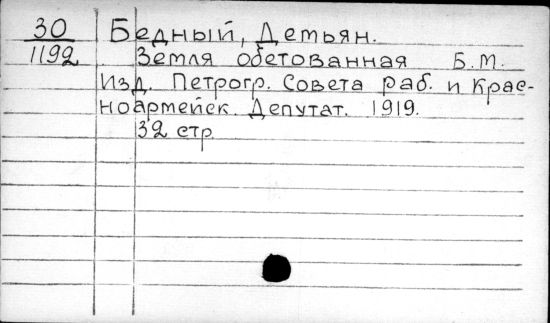 30 Бедный, Демьян.
1192 Земля обетованная Б.М.
Изд. Петрогр. Совета раб. и Крас-
ноармейск. Депутат. 1919.
32 стр